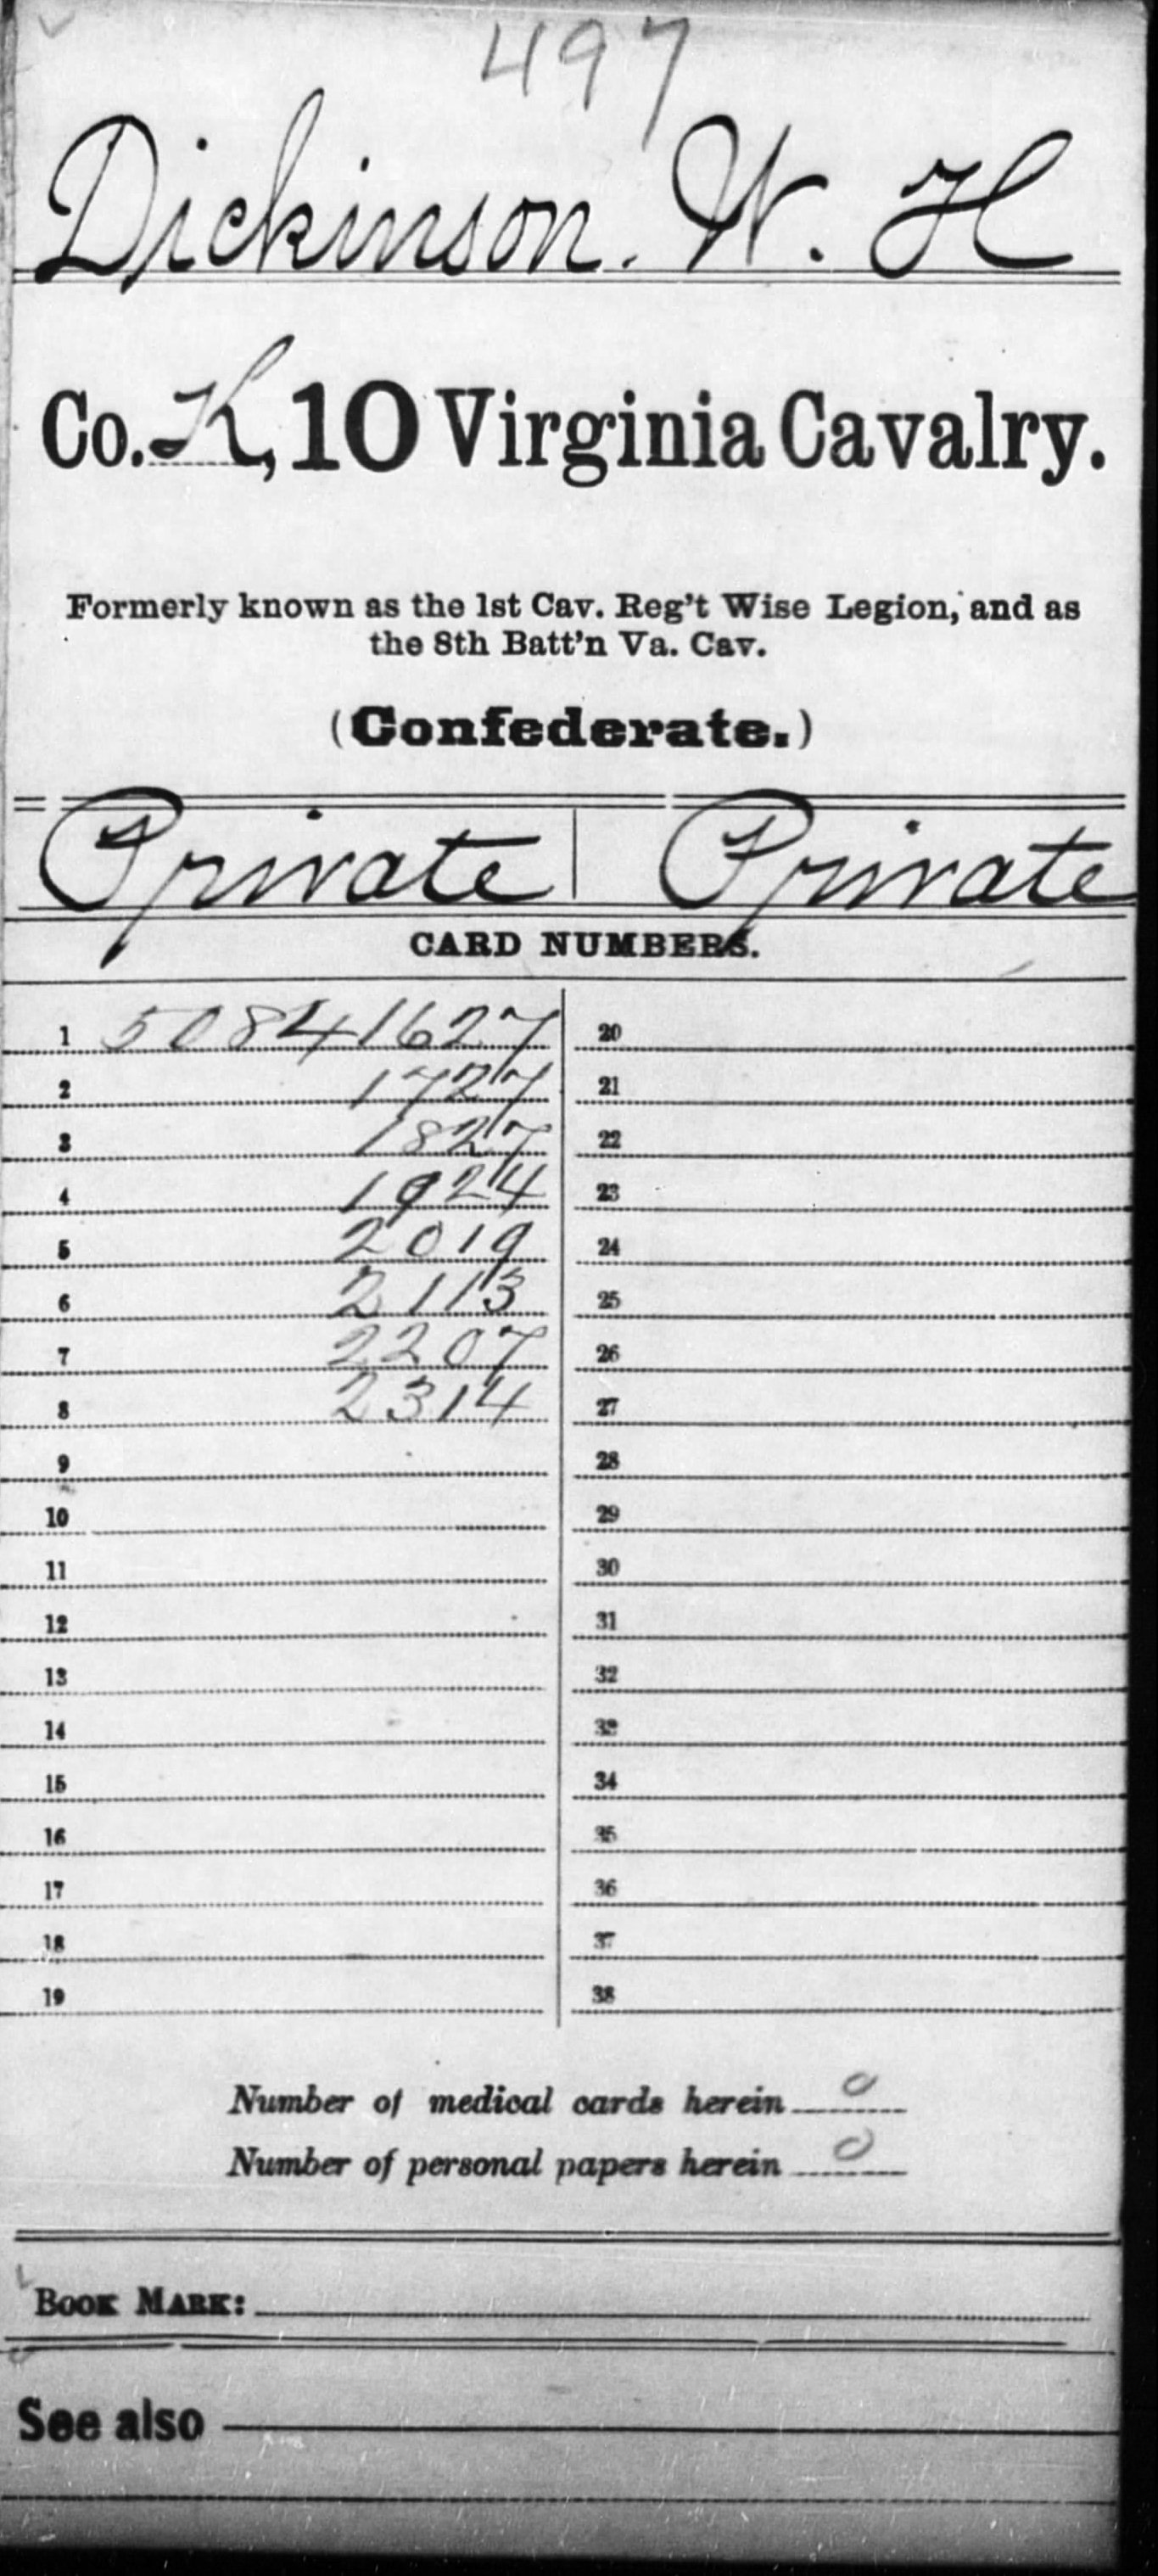 497
Dickinson. W. H
Co. K, 10 Virginia Cavalry.
Formerly known as the 1st Cav. Reg't Wise Legion, and as
the 8th Batt'n Va. Cav.
(Confederate.)
Private | Private
CARD NUMBERS.
1 50841627 20
2 1727 21
3 1827 22
4 1924 23
5 2019 24
6 2113 25
7 2207 26
8 2314 27
9 28
10 29
11 30
12 31
13 32
14 33
15 34
16 35
17 36
18 37
19 38
Number of medical cards herein 0
Number of personal papers herein 0
BOOK MARK:
See also